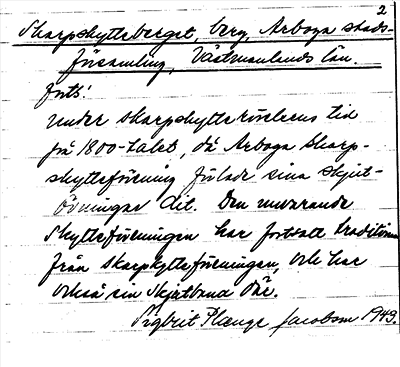 2
Skarpskytteberget, berg, Arboga stads-
församling, Västmanlands län.
forts!
under skarpskytterörelsens tid
på 1800-talet, då Arboga Skarp-
skytteförening förlade sina skjut-
övningar dit. Den nuvarande
Skytteföreningen har fortsatt traditionen
från skarpskytteföreningen, och har
också sin skjutbana där.
Sigbrit Plænge Jacobson 1949.